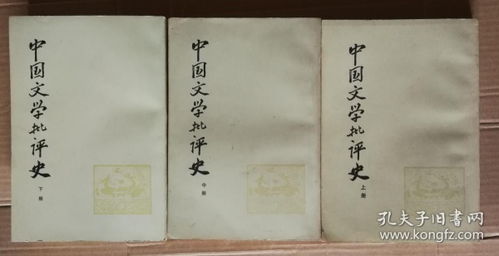 中国文学批评史
下册
中国文学批评史
中册
中国文学批评史
上册
孔夫子旧书网
www.kongfz.com